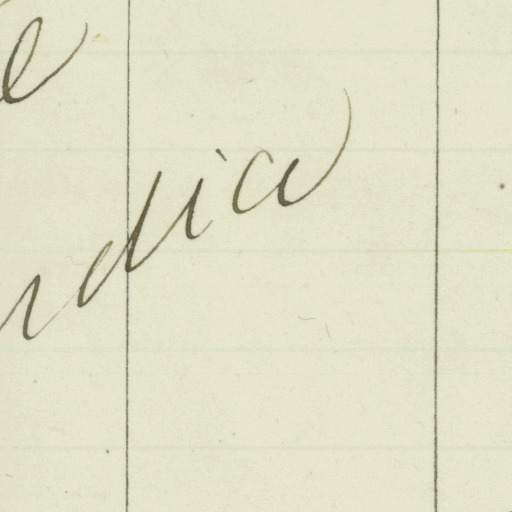 e
ndia